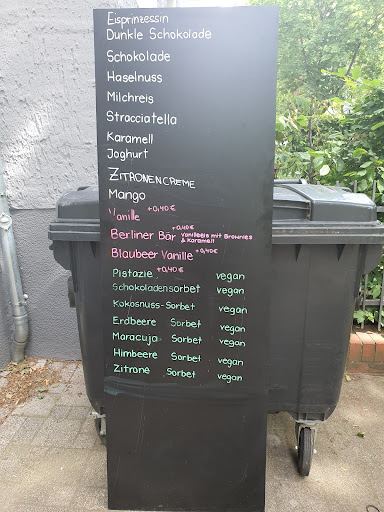 Eisprinzessin
Dunkle Schokolade
Schokolade
Haselnuss
Milchreis
Stracciatella
Karamell
Joghurt
ZITRONENCREME
Mango
Vanille +0,40€
Berliner Bär +0,40€ Vanilleeis mit Brownies & Karamell
Blaubeer Vanille +0,40€
Pistazie +0,40€ vegan
Schokoladensorbet vegan
Kokosnuss-Sorbet vegan
Erdbeere Sorbet vegan
Maracuja Sorbet vegan
Himbeere Sorbet vegan
Zitrone Sorbet vegan